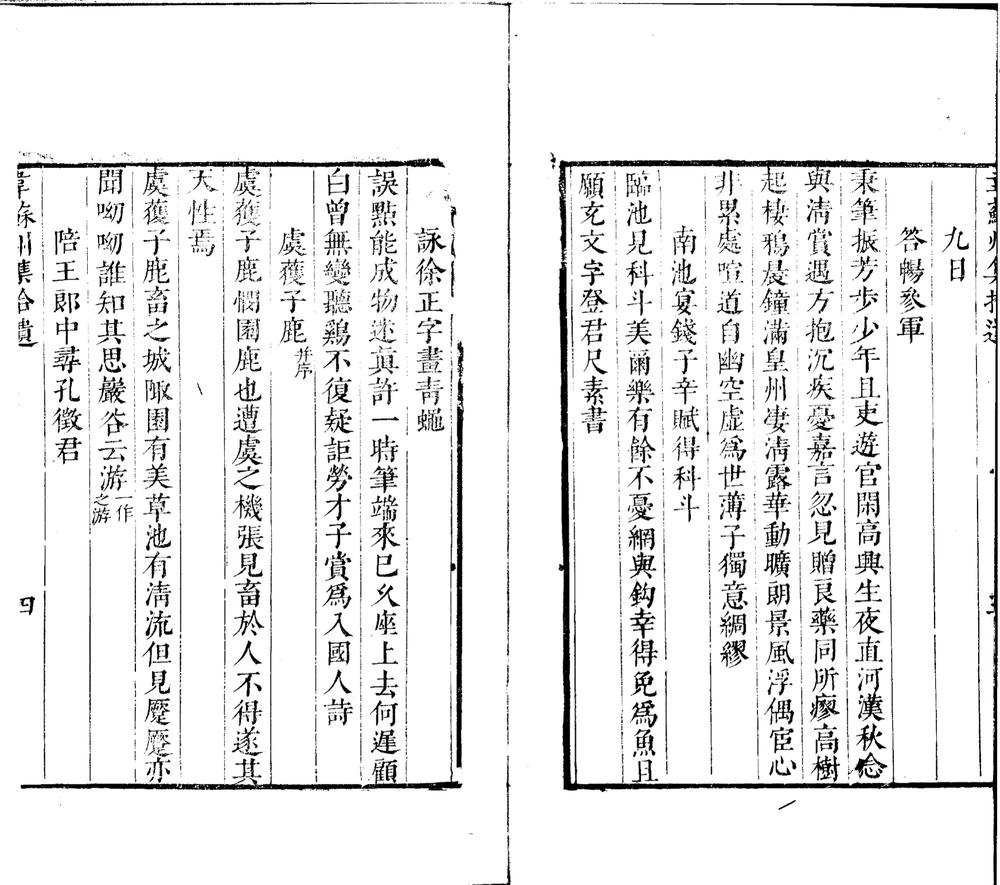 九日
答暢參軍
秉筆振芳步少年且吏遊官閑高興生夜直河漢秋念
與淸賞遇方抱沉疾憂嘉言忽見贈良藥同所瘳高樹
起棲鴉晨鐘滿皇州凄淸露華動曠朗景風浮偶宦心
非累處喧道自幽空虛爲世薄子獨意綢繆
南池宴錢子辛賦得科斗
臨池見科斗美爾樂有餘不憂網與鈎幸得免爲魚且
願充文字登君尺素書
詠徐正字畫青蠅
誤點能成物迷眞許一時筆端來已久座上去何遲顧
白曾無變聽鷄不復疑詎勞才子賞爲入國人詩
虞獲子鹿并序
虞獲子鹿憫園鹿也遭虞之機張見畜於人不得遂其
天性焉
虞獲子鹿畜之城陬園有美草池有淸流但見麌麌亦
聞呦呦誰知其思巖谷云游一作之游
陪王郎中尋孔徵君
韋蘇州集拾遺
四